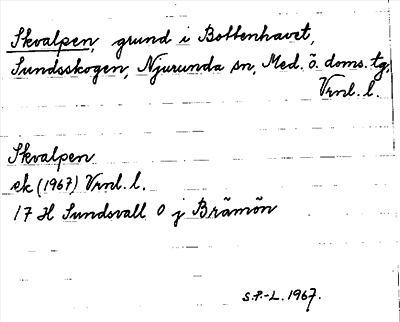 Skvalpen, grund i Bottenhavet,
Sundsskogen, Njurunda sn, Med. ö. doms. tg,
Vrnl. l.
Skvalpen
ek (1967) Vrnl. l.
17 H Sundsvall O j Brämön
S.P.-L. 1967.